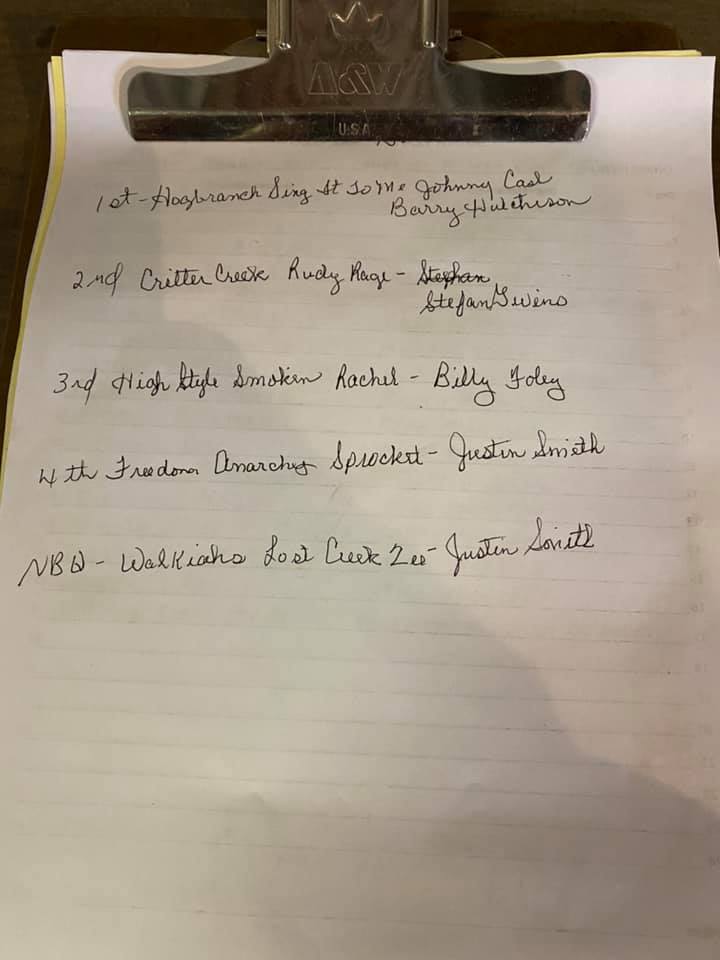 A&W
U.S.A.
1st - Hogbranch Sing It To Me Johnny Cash
Barry Hutchison
2nd Critter Creek Rudy Rage - Stephan
Stefan Gwinn
3rd High Style Smoken Rachel - Billy Foley
4th Freedom Anarchy Sprocket - Justin Smith
NBQ - Walkiahs Lost Creek Zee - Justin Smith